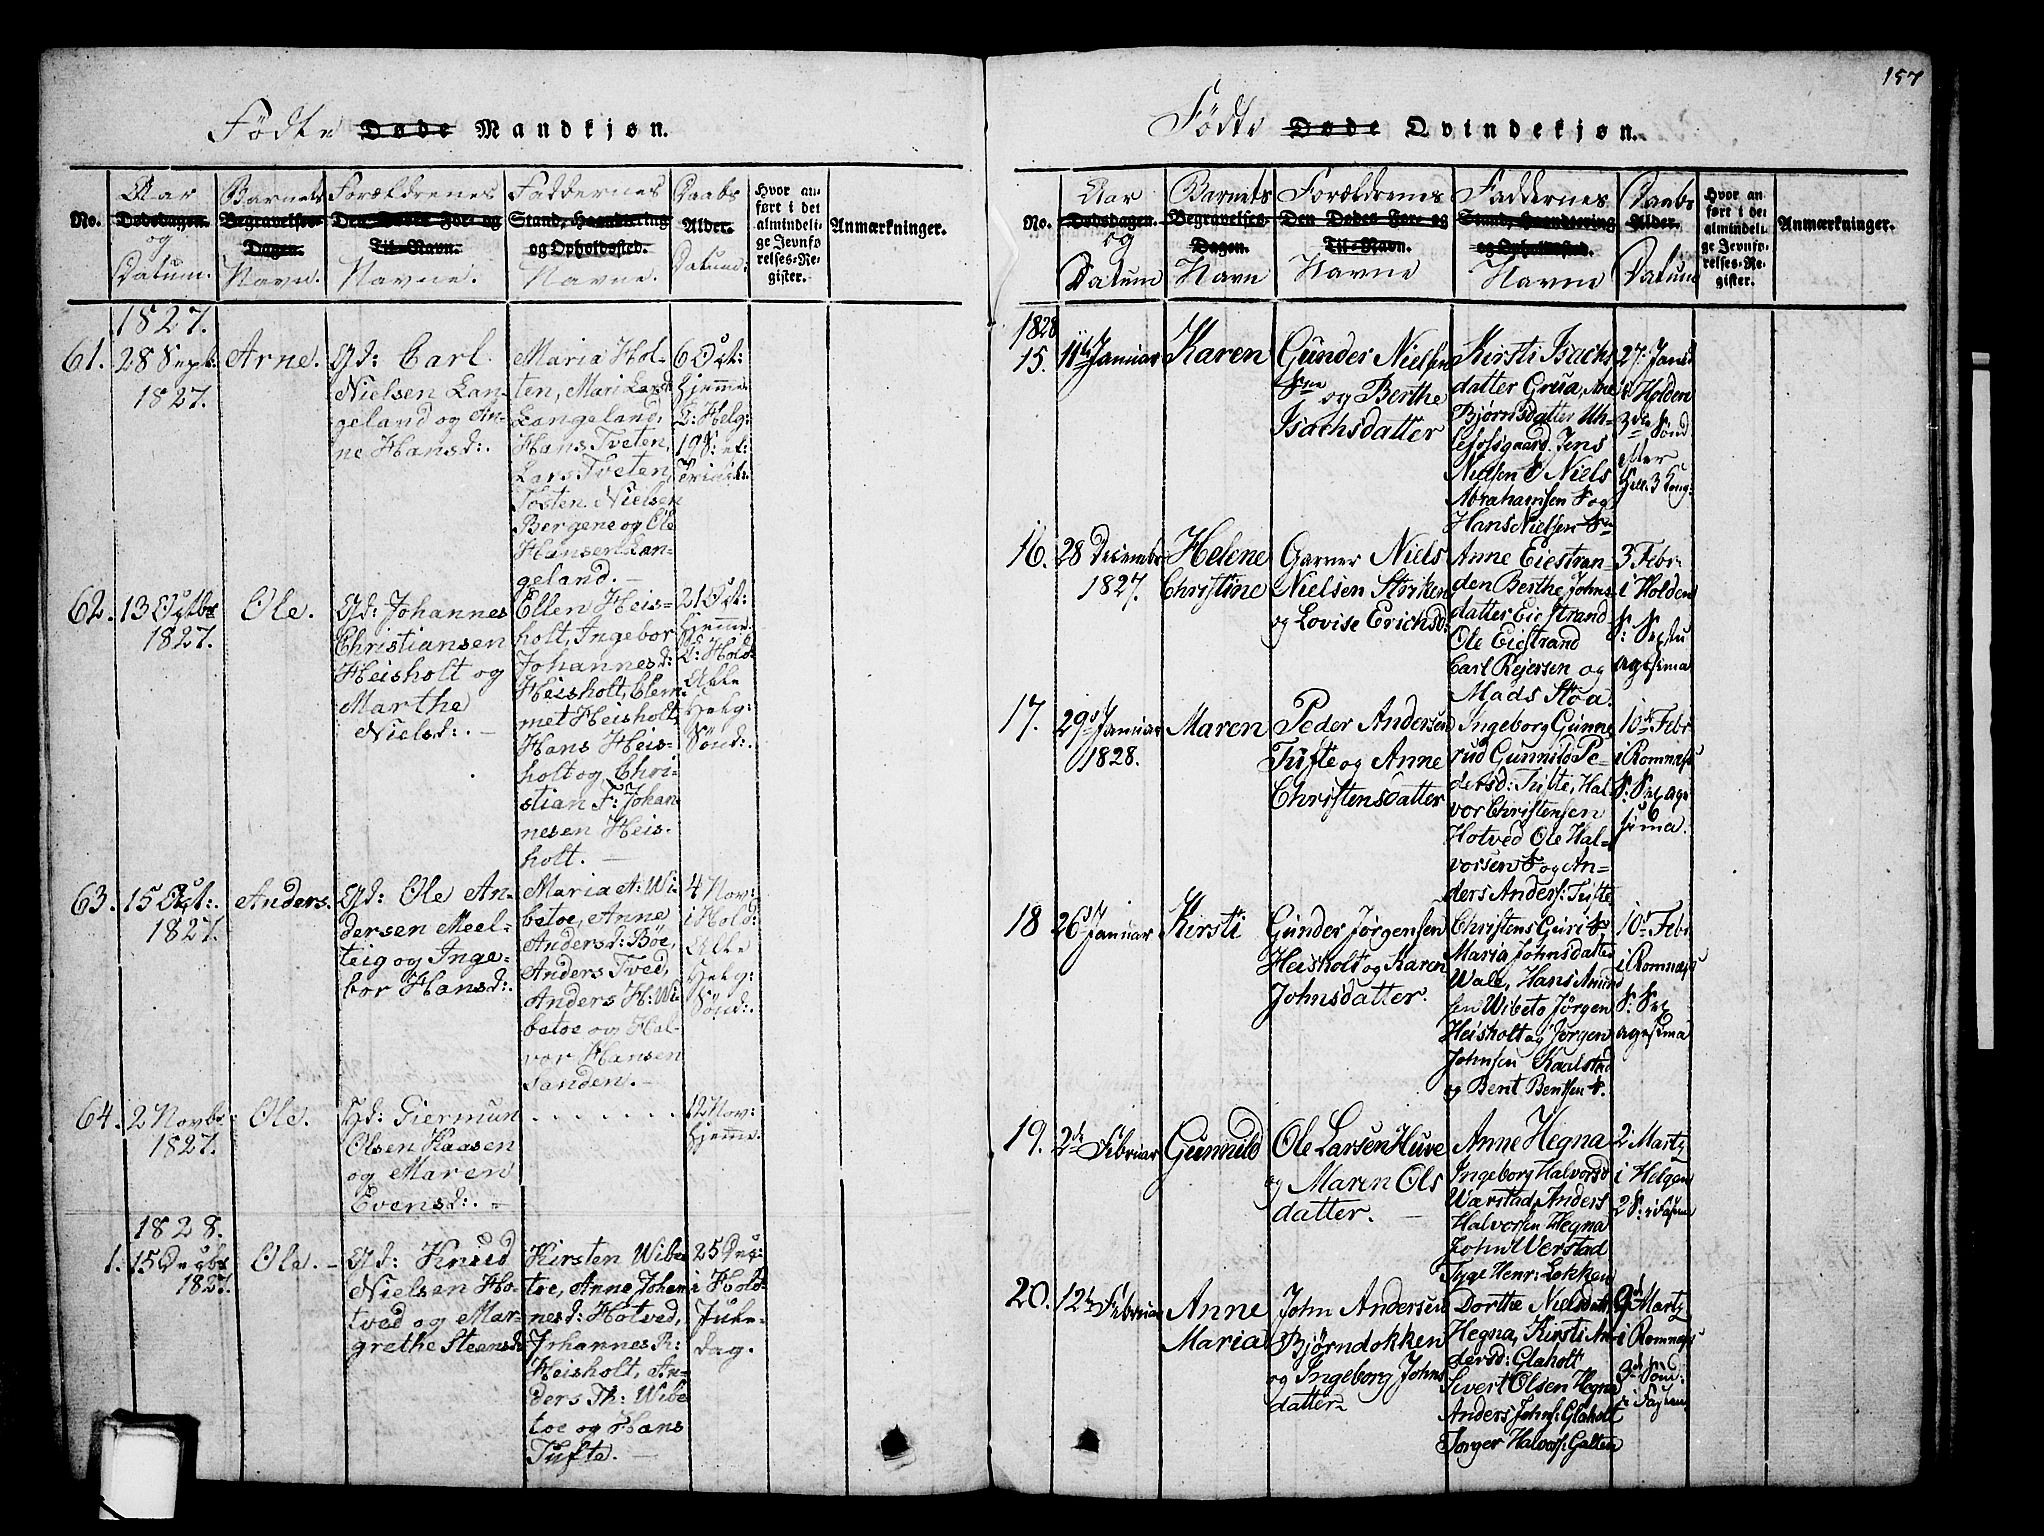 157
Fødte Døde Mandkjøn.
No.
Aar
Dødsdagen.
og
Datum.
Barnets
Begravelses-
Dagen.
Navn.
Forældrenes
Den Dødes For- og
Til-Navn.
Navne.
Faddernes
Stand, Haandtering
og Opholdssted.
Navne.
Daabs
Alder.
Datum:
Hvor an-
ført i det
almindeli-
ge Jevnfø-
relses-Re-
gister.
Anmærkninger.
1827.
61.
28 Sept:
1827.
Arne.
Gd: Carl
Nielsen Lan-
geland og An-
ne Hansd:.
Maria Hol-
ten, Mari Larsd
Langeland,
Hans Tveten,
Lars Tveten,
Tosten Nielsen
Bergene og Ole
Hansen Lan-
geland. –
6 Oct:
hjeme.
D: Helg:
19 S: ef:
Trinit:.
62.
13 Octbr
1827.
Ole.
Gd: Johannes
Christiansen
Heisholt og
Marthe
Nielsd:. –
Ellen Heis-
holt, Ingebor
Johannesd:
Heisholt, Clem-
met Heisholt,
Hans Heis-
holt og Chri-
stian F: Johan
nesen Heis-
holt. –
21 Oct:
hjeme.
D: Hold:
Alle
Helg:
Sönd:.
63.
15 Oct:.
1827.
Anders.
Gd: Ole An-
dersen Meel-
teig og Inge-
bor Hansd:.
Maria A: Wi-
betoe, Anne
Andersd: Böe,
Anders Tved,
Anders H: Wi-
betoe og Hal-
vor Hansen
Sanden. –
4 Nov:
i Hold:
Alle
Helg:
Sönd:.
64.
2 Novbr
1827.
Ole.
Hd: Giermun
Olsen Kaasen
og Maren
Evensd:. –
. . . . . . .
12 Nov:
hjeme.
1828.
1.
15 Decbr
1827.
Ole. –
Gd: Knud
Nielsen Ho-
tved og Mar-
grethe Steensd:
Kirsten Wibe
toe, Anne Johan
nesd: Hotved,
Johannes R:
Heisholt, An-
ders Th: Wibe
toe og Hans
Tufte. –
25 Dec:
i Hold:
Jule-
dag.
Fødte Døde Qvindekjøn.
No.
Aar
Dødsdagen.
og
Datum
Barnets
Begravelses-
Dagen.
Navn
Forældrenes
Den Dødes For- og
Til-Navn.
Navne
Faddernes
Stand, Haandtering
og Opholdssted.
Navne
Daabs
Alder.
Datum
Hvor an-
ført i det
almindeli-
ge Jevnfø-
relses-Re-
gister.
Anmærkninger.
1828
15.
11te Januar
Karen
Gunder Nielsen
og Berthe
Isachsdatter
Kirsti Isachs
datter Grua, Ane
Bjørnsdatter Uh-
lefosgaard. Jens
Nielsen & Niels
Abrahamsen og
Hans Nielsen
27. Jans
i Holden
3die Sönd
efter
Hell. 3 Kong:
16.
28 Decembr
1827.
Helene
Christine
Garver Niels
Nielsen Striken
og Lovise Erichsd:
Anne Eiestran-
den Berthe Johns
datter Eiestrand
Ole Eiestrand
Carl Rejersen og
Mads Stoa.
3 Febr
i Holden
S: Septu
agesima
17.
29 Januar
1828.
Maren
Peder Andersen
Tufte og Anne
Christensdatter
Ingeborg Gunne
rud Gunnild Pe-
dersd: Tufte, Hal-
vor Christensen
Hotved Ole Hal-
vorsen og An-
ders Anders: Tufte
10de Febr
i Romnæs
S: Sexage
sima.
18
26 Januar
Kirsti
Gunder Jørgensen
Heisholt og Karen
Johnsdatter.
Christens Guri
Maria Johnsdatter
Wale, Hans Amund
sen Wibeto Jørgen
Heisholt og Jørgen
Johnsen Kaalstad
og Bent Bentsen
10 Febr.
i Romnæs
S: Sex
agesima
19.
2de Februar
Gunnild
Ole Larsen Huve
og Maren Ols
datter. –
Anne Hegna
Ingeborg Halvorsd
Warstad, Anders
Halvorsen Hegna
John Werstad
Tyge Henr: Løkken
2 Marty
i Helgen
2 S: i Fasten
20.
12te Februar
Anne
Maria
John Andersen
Bjørndokken
og Ingeborg Johns
datter.
Dorthe Nielsdatt
Hegna, Kirsti An
dersd: Glaholt
Sivert Olsen Hegna
Anders Johns: Glaholt
Torger Halvors: Galten
9 Marty
i Romnæs
3de Sönd:
i Fasten